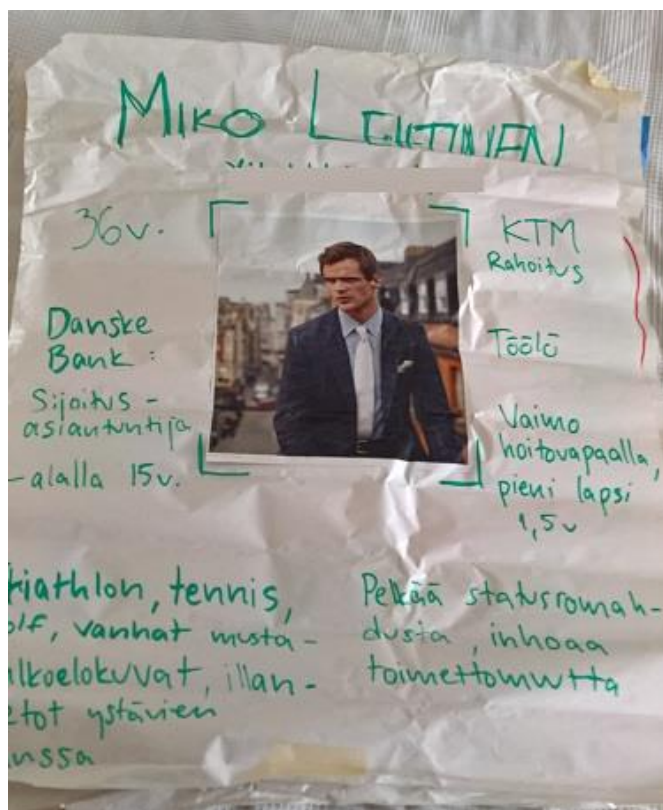 MIKO LEHTINEN
36v.
Danske
Bank:
Sijoitus-
asiantuntija
-alalla 15v.
KTM
Rahoitus
Töölö
Vaimo
hoitovapaalla,
pieni lapsi
1,5v
riathlon, tennis,
olf, vanhat musta-
lkoelokuvat, illan-
etot ystävien
nssa
Pelkää statusromah-
dusta, inhoaa
toimettomuutta